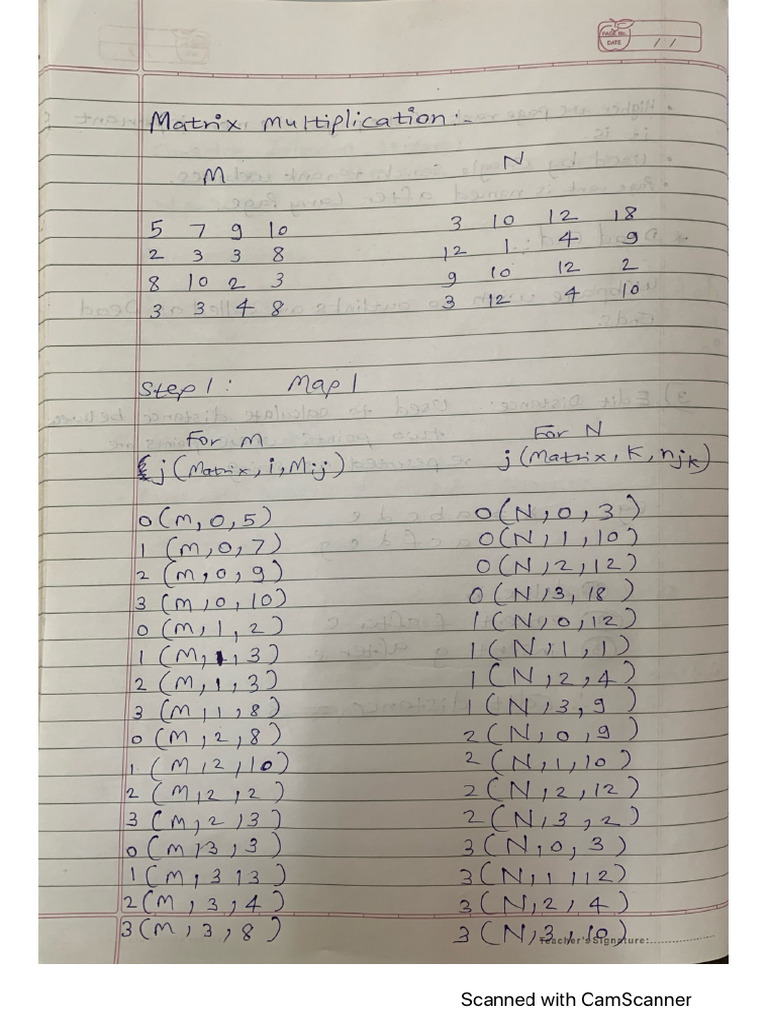 PAGE No.
DATE / /
Matrix multiplication:-
M N
5 7 9 10 3 10 12 18
2 3 3 8 12 1 4 9
8 10 2 3 9 10 12 2
3 3 4 8 3 12 4 10
Step 1: Map 1
For M For N
j (Matrix, i, Mij) j (Matrix, k, njk)
0 (M, 0, 5) 0 (N, 0, 3)
1 (M, 0, 7) 0 (N, 1, 10)
2 (M, 0, 9) 0 (N, 2, 12)
3 (M, 0, 10) 0 (N, 3, 18)
0 (M, 1, 2) 1 (N, 0, 12)
1 (M, 1, 3) 1 (N, 1, 1)
2 (M, 1, 3) 1 (N, 2, 4)
3 (M, 1, 8) 1 (N, 3, 9)
0 (M, 2, 8) 2 (N, 0, 9)
1 (M, 2, 10) 2 (N, 1, 10)
2 (M, 2, 2) 2 (N, 2, 12)
3 (M, 2, 3) 2 (N, 3, 2)
0 (M, 3, 3) 3 (N, 0, 3)
1 (M, 3, 3) 3 (N, 1, 12)
2 (M, 3, 4) 3 (N, 2, 4)
3 (M, 3, 8) 3 (N, 3, 10)
Teacher's Signature:
Scanned with CamScanner